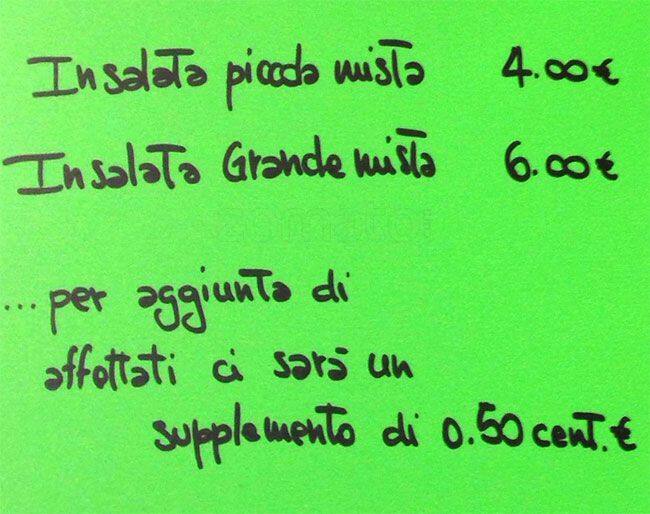 Insalata piccola mista 4.00€
Insalata Grande mista 6.00€
zomato
...per aggiunta di
affettati ci sarà un
supplemento di 0.50 cent.€